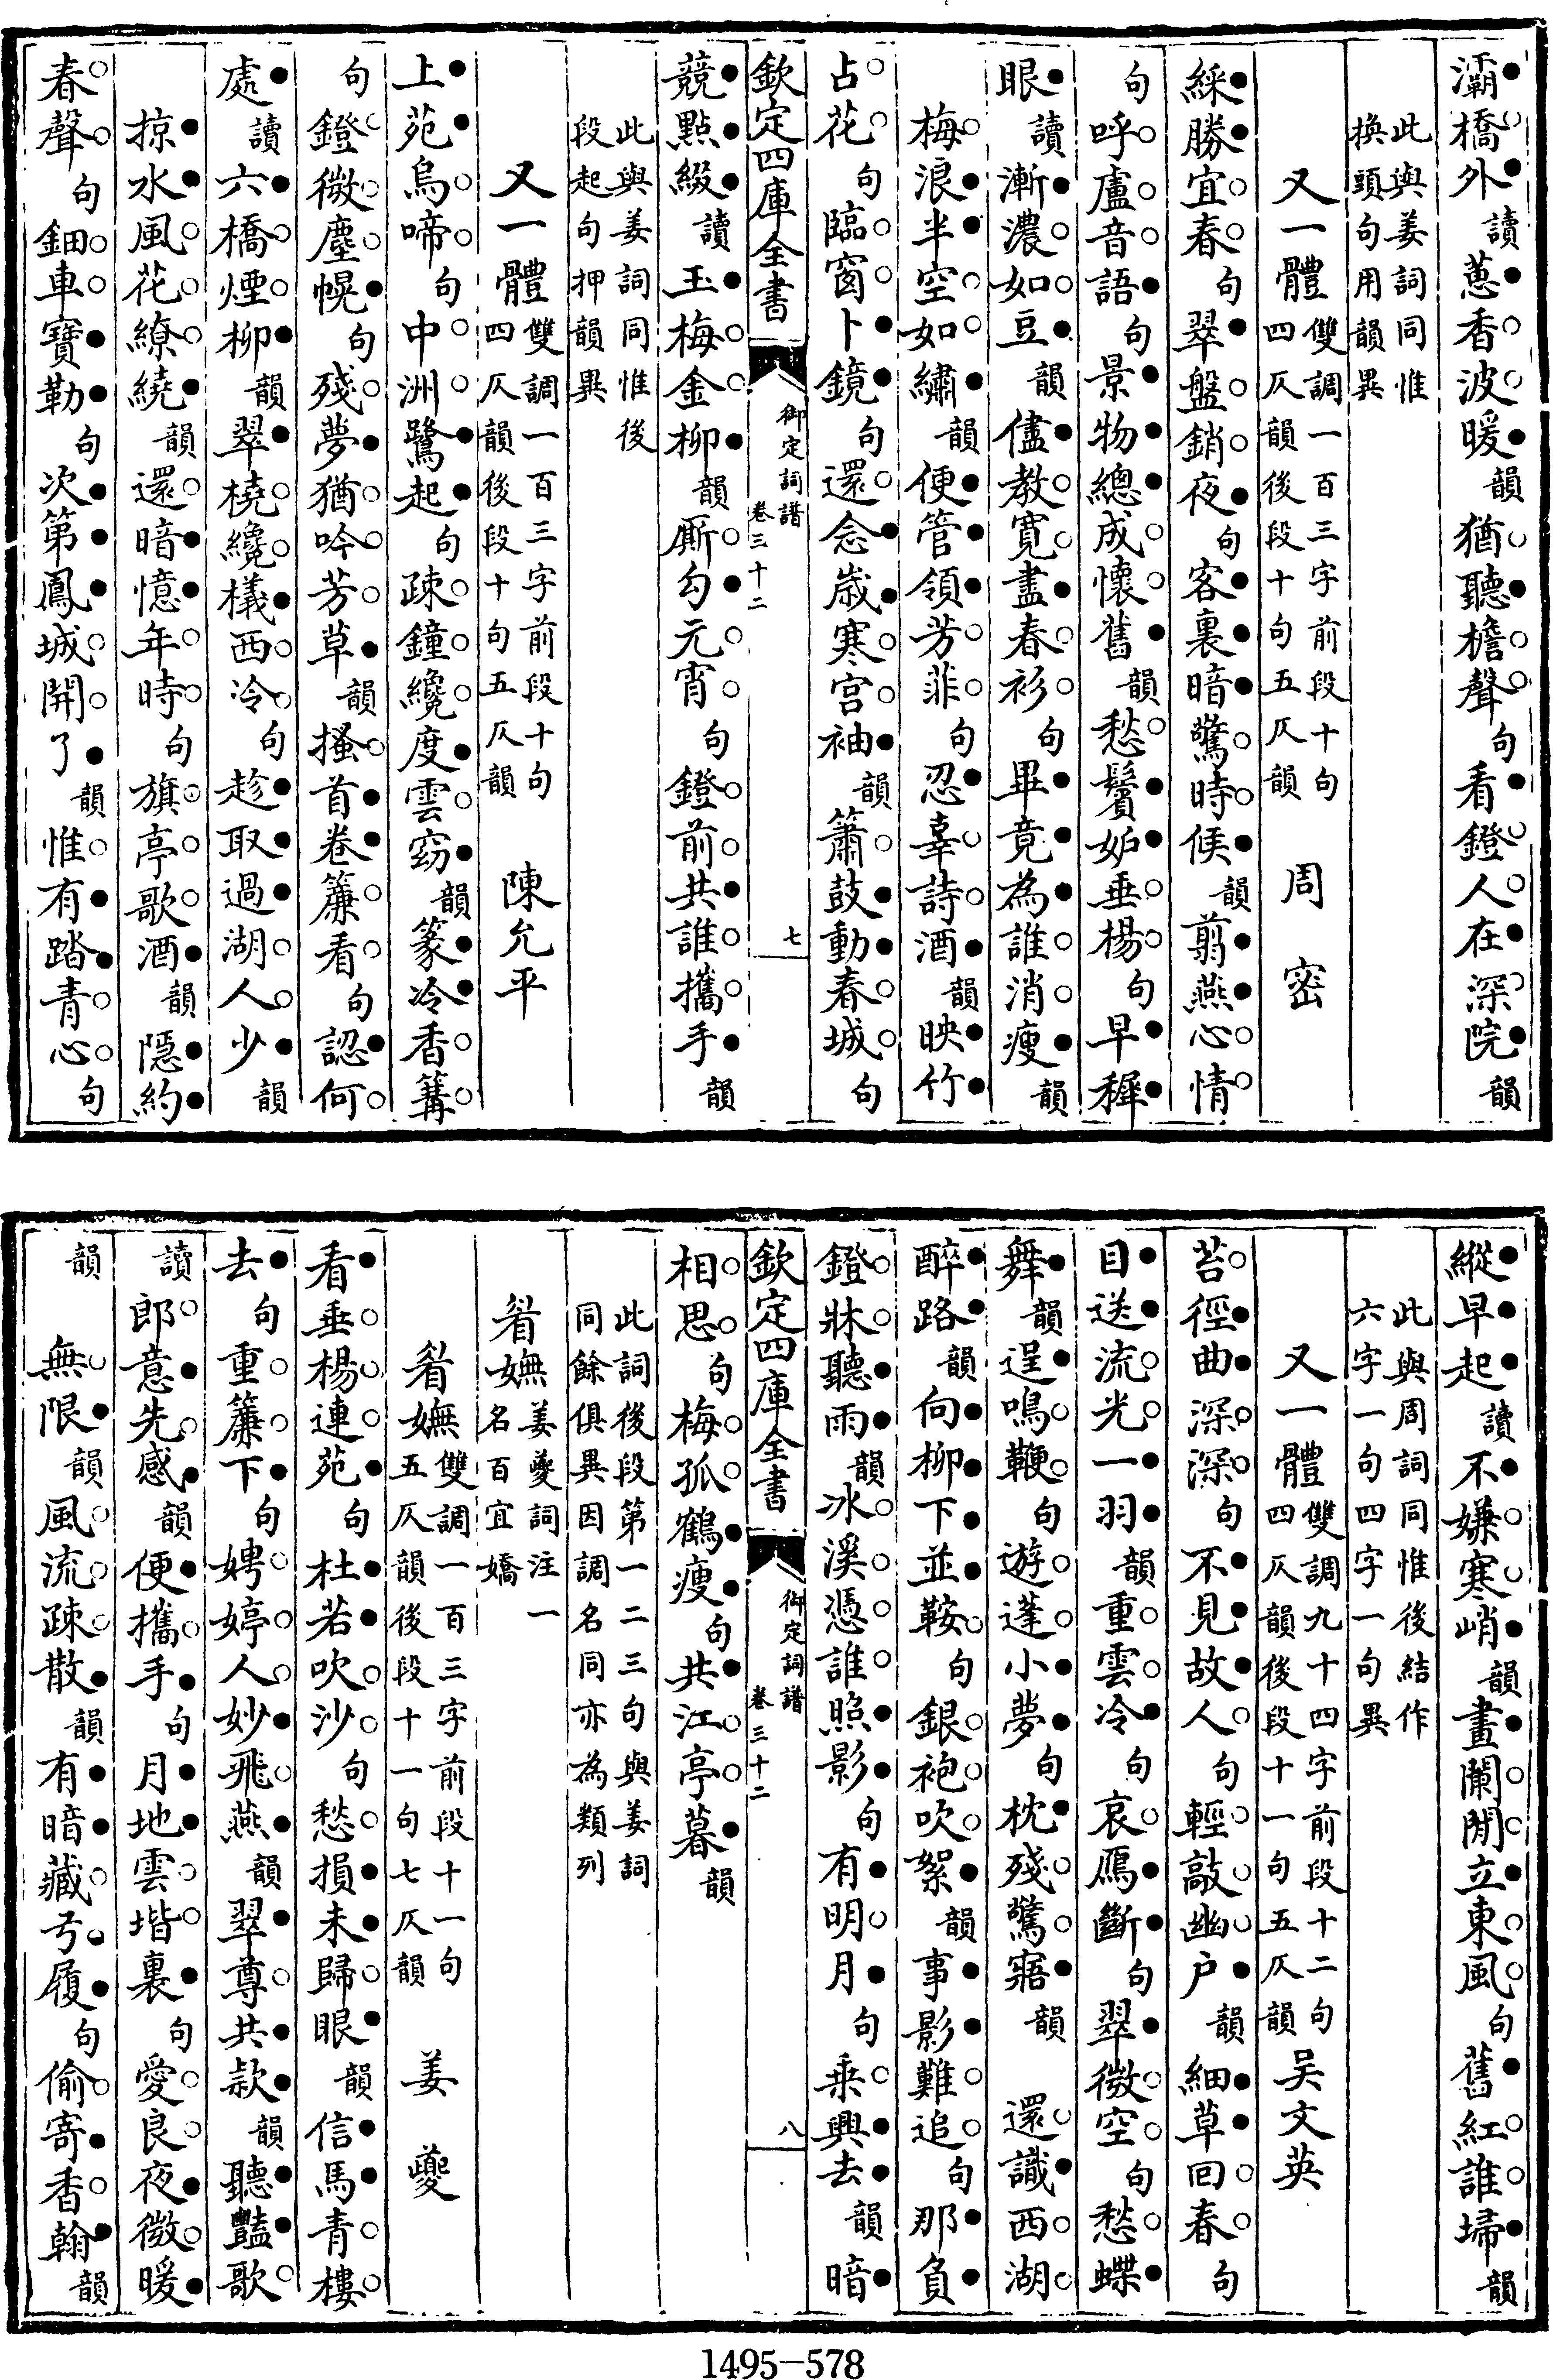 灞橋外讀蔥香波暖韻猶聽檐聲句看鐙人在深院韻
此與姜詞同惟
換頭句用韻異
又一體雙調一百三字前段十句
四仄韻後段十句五仄韻 周密
綵勝宜春句翠盤銷夜句客裏暗驚時候韻翦燕心情
句呼盧音語句景物總成懷舊韻愁鬢妒垂楊句早穉
眼讀漸濃如豆韻儘教寬盡春衫句畢竟為誰消瘦韻
梅浪半空如繡韻便管領芳菲句忍辜詩酒韻映竹
占花句臨窗卜鏡句還念嵗寒宮袖韻簫鼓動春城句
欽定四庫全書 御定詞譜 卷三十二 七
競點綴讀玉梅金柳韻厮勾元宵句鐙前共誰攜手韻
此與姜詞同惟後
段起句押韻異
又一體雙調一百三字前段十句
四仄韻後段十句五仄韻 陳允平
上苑烏啼句中洲鷺起句疎鐘纔度雲窈韻篆冷香篝
句鐙微塵幌句殘夢猶吟芳草韻搔首卷簾看句認何
處讀六橋煙柳韻翠橈纔檥西泠句趁取過湖人少韻
掠水風花繚繞韻還暗憶年時句旗亭歌酒韻隱約
春聲句鈿車寶勒句次第鳳城開了韻惟有踏青心句
縱早起讀不嫌寒峭韻畫闌閒立東風句舊紅誰埽韻
此與周詞同惟後結作
六字一句四字一句異
又一體雙調九十四字前段十二句
四仄韻後段十一句五仄韻 吴文英
苔徑曲深深句不見故人句輕敲幽户韻細草回春句
目送流光一羽韻重雲冷句哀鴈斷句翠微空句愁蝶
舞韻逞鳴鞭句遊蓬小夢句枕殘驚寤韻 還識西湖
醉路韻向柳下並鞍句銀袍吹絮韻事影難追句那負
鐙牀聽雨韻冰溪憑誰照影句有明月句乗興去韻暗
欽定四庫全書 御定詞譜 卷三十二 八
相思句梅孤鶴瘦句共江亭暮韻
此詞後段第一二三句與姜詞
同餘俱異因調名同亦為類列
眉嫵姜夔詞注一
名百宜嬌
眉嫵雙調一百三字前段十一句
五仄韻後段十一句七仄韻 姜夔
看垂楊連苑句杜若吹沙句愁損未歸眼韻信馬青樓
去句重簾下句娉婷人妙飛燕韻翠尊共款韻聽豔歌
讀郎意先感韻便攜手句月地雲堦裏句愛良夜微暖
韻 無限韻風流疎散韻有暗藏弓履句偷寄香翰韻
1495-578